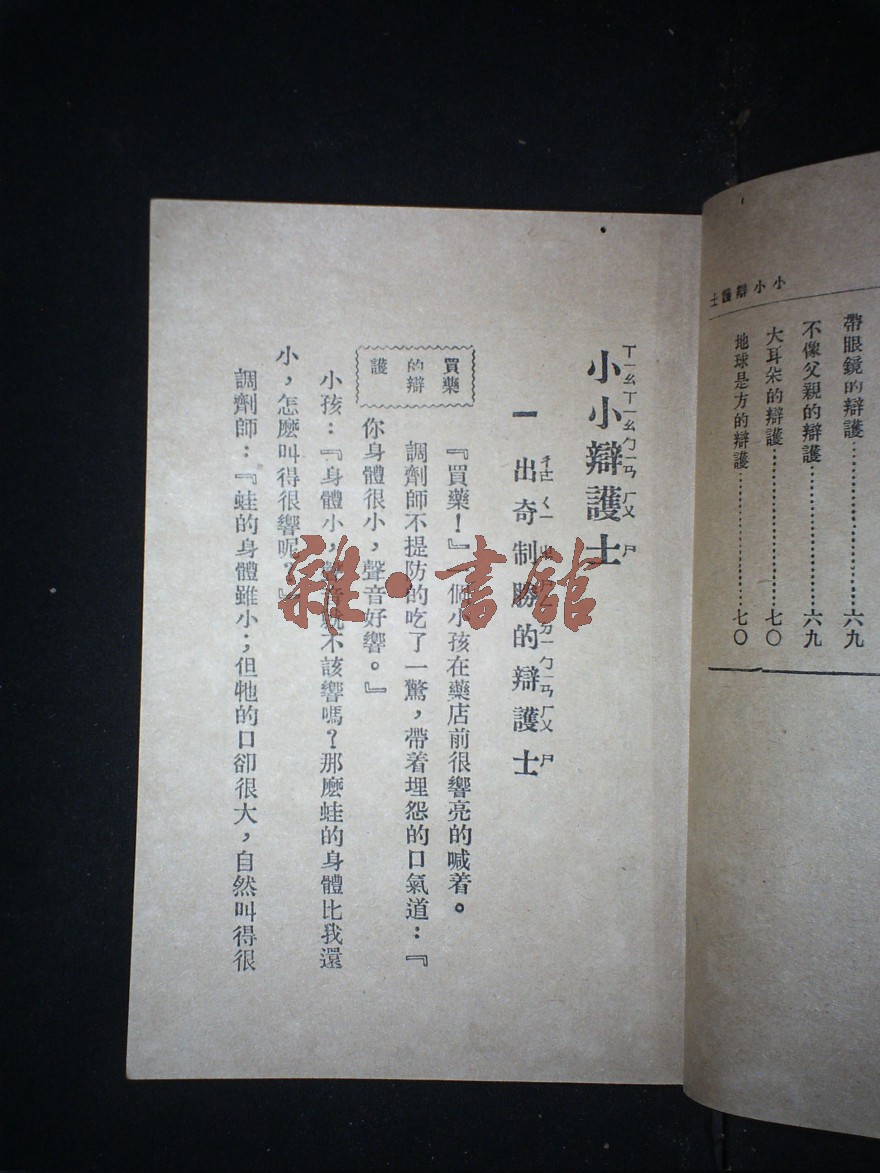 小小辯護士
帶眼鏡的辯護⋯⋯⋯⋯⋯⋯六九
不像父親的辯護⋯⋯⋯⋯⋯⋯六九
大耳朵的辯護⋯⋯⋯⋯⋯⋯七〇
地球是方的辯護⋯⋯⋯⋯⋯⋯七〇
小小辯護士
ㄒㄧㄠㄒㄧㄠㄅㄧㄢ ㄏㄨ ㄕ
一 出奇制勝的辯護士
買藥的辯護
『買藥!』一個小孩在藥店前很響亮的喊着。
調劑師不提防的吃了一驚,帶着埋怨的口氣道:『
你身體很小,聲音好響。』
小孩:『身體小,聲音就不該響嗎?那麽蛙的身體比我還
小,怎麽叫得很響呢?』
調劑師:『蛙的身體雖小;但牠的口卻很大,自然叫得很
雜·書館